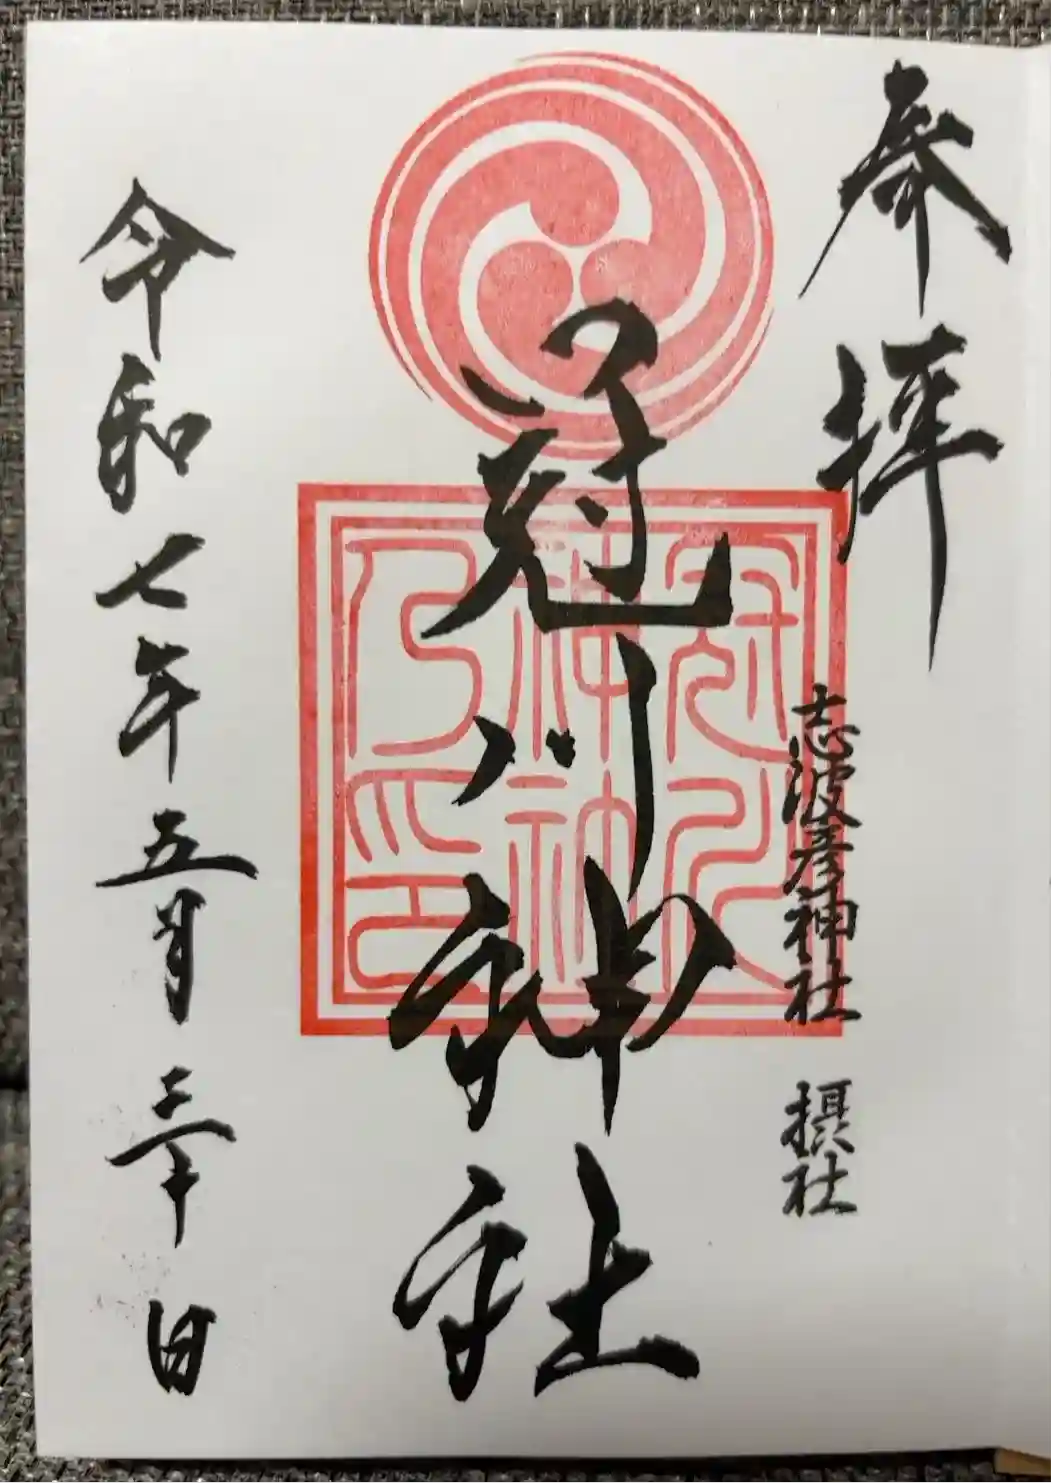 奉拝
志波彦神社 摂社
冠川神社
冠川神社乃印
令和七年五月三十日